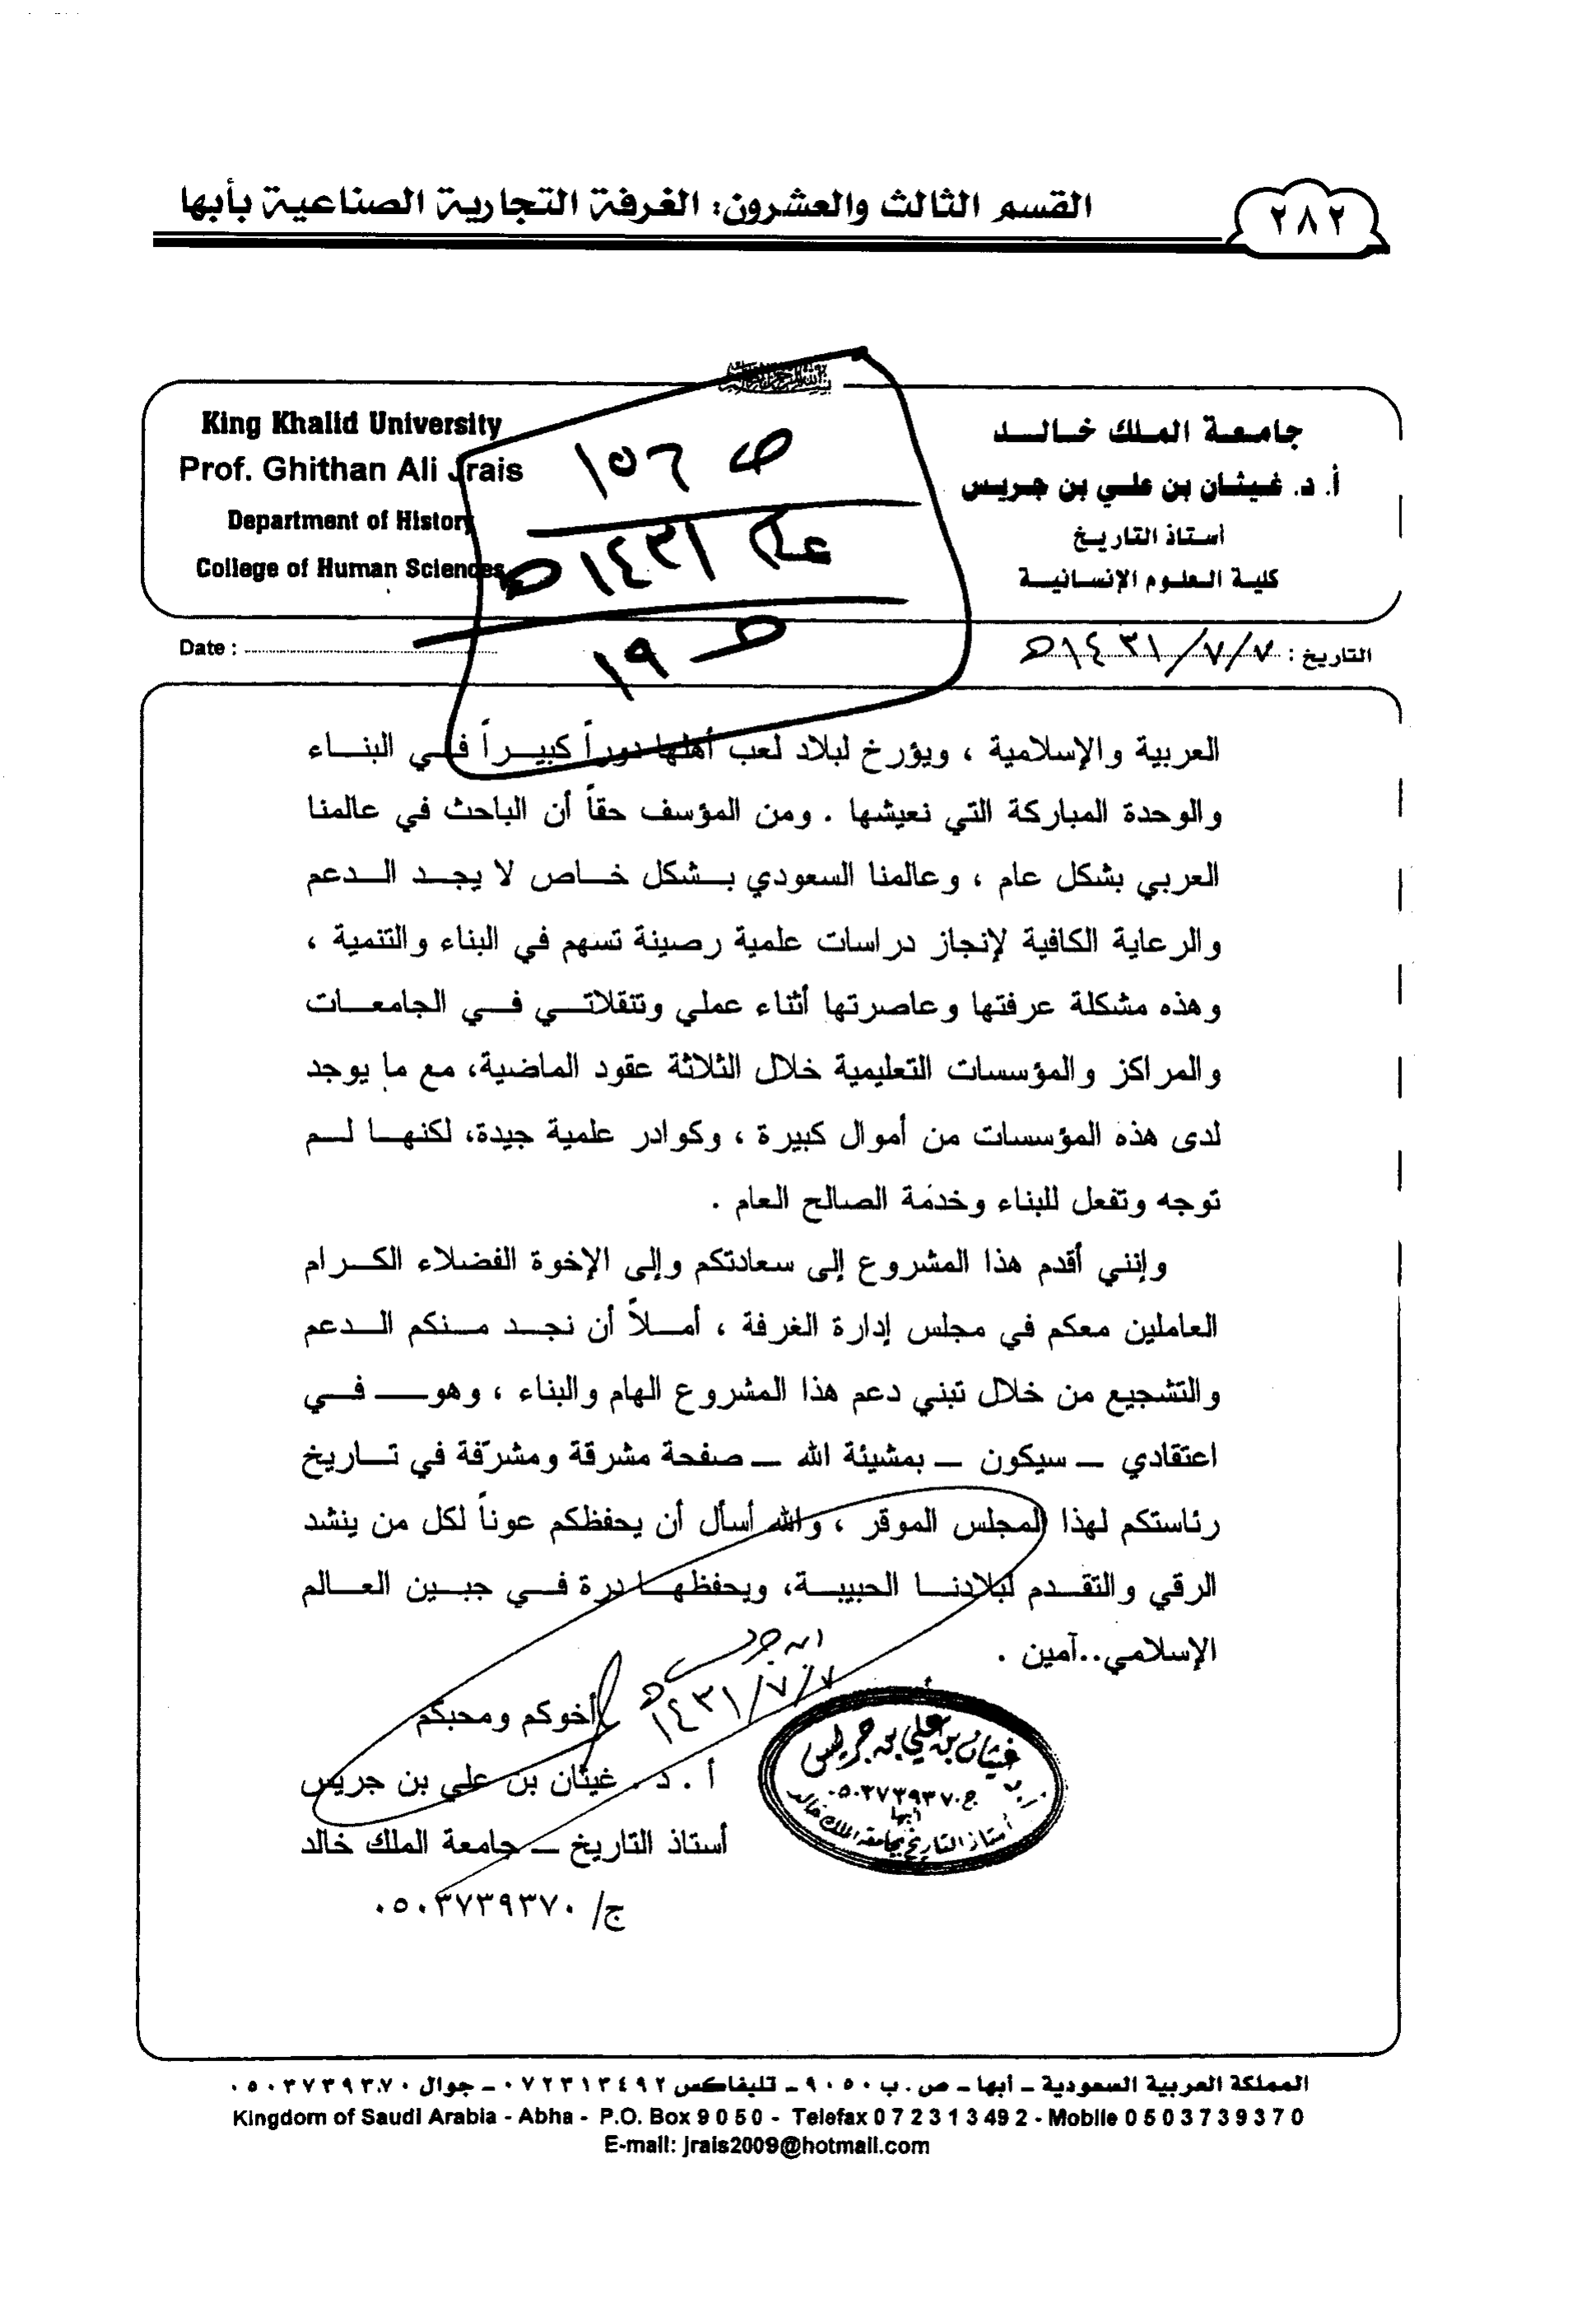 ٢٨٢
القسم الثالث والعشرون: الغرفة التجارية الصناعية بأبها
King Khalid University
Prof. Ghithan Ali Jrais
Department of History
College of Human Sciences
Date :
جامعة الملك خالد
أ. د. غيثان بن علي بن جريس
أستاذ التاريخ
كلية العلوم الإنسانية
التاريخ : ٧/٧/١٤٣١هـ
ص ١٥٦
عام ١٤٣١هـ
ص ١٩
العربية والإسلامية ، ويؤرخ لبلاد لعب أهلها دوراً كبيراً في البناء
والوحدة المباركة التي نعيشها . ومن المؤسف حقاً أن الباحث في عالمنا
العربي بشكل عام ، وعالمنا السعودي بشكل خاص لا يجد الدعم
والرعاية الكافية لإنجاز دراسات علمية رصينة تسهم في البناء والتنمية ،
وهذه مشكلة عرفتها وعاصرتها أثناء عملي وتنقلاتي في الجامعات
والمراكز والمؤسسات التعليمية خلال الثلاثة عقود الماضية، مع ما يوجد
لدى هذه المؤسسات من أموال كبيرة ، وكوادر علمية جيدة، لكنها لم
توجه وتفعل للبناء وخدمة الصالح العام .
وإنني أقدم هذا المشروع إلى سعادتكم وإلى الإخوة الفضلاء الكرام
العاملين معكم في مجلس إدارة الغرفة ، أملاً أن نجد منكم الدعم
والتشجيع من خلال تبني دعم هذا المشروع الهام والبناء ، وهو– في
اعتقادي – سيكون – بمشيئة الله – صفحة مشرقة ومشرّفة في تاريخ
رئاستكم لهذا المجلس الموقر ، والله أسأل أن يحفظكم عوناً لكل من ينشد
الرقي والتقدم لبلادنا الحبيبة، ويحفظها درة في جبين العالم
الإسلامي..آمين .
ابن جريس
٧/٧/١٤٣١هـ
أخوكم ومحبكم
أ . د . غيثان بن علي بن جريس
أستاذ التاريخ – جامعة الملك خالد
ج/ ٠٥٠٣٧٣٩٣٧٠
غيثان بن علي بن جريس
ج.٠٥٠٣٧٣٩٣٧٠
أبها
أستاذ التاريخ بجامعة الملك خالد
المملكة العربية السعودية – أبها – ص . ب ٩٠٥٠ – تليفاكس ٠٧٢٣١٣٤٩٢ – جوال ٠٥٠٣٧٣٩٣٧٠
Kingdom of Saudi Arabia - Abha - P.O. Box 9 0 5 0 - Telefax 0 7 2 3 1 3 4 9 2 - Mobile 0 5 0 3 7 3 9 3 7 0
E-mail: jrais2009@hotmail.com